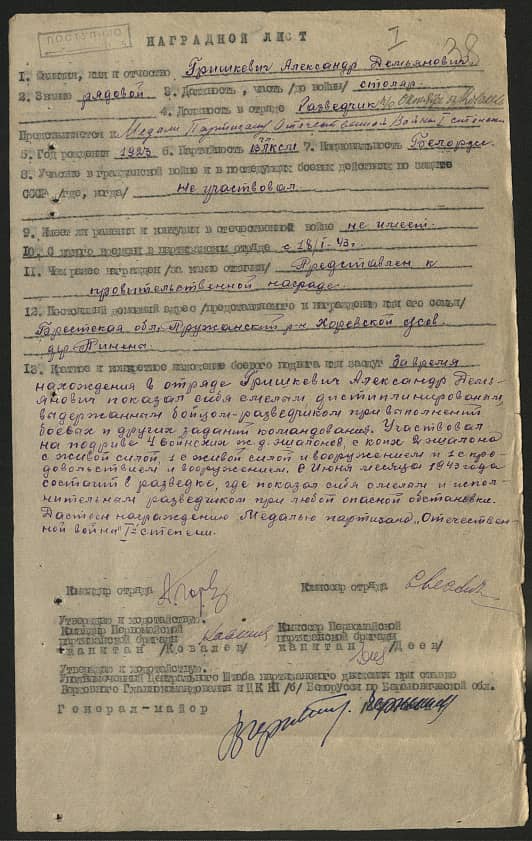 ПОСТУПИЛО
I
38
НАГРАДНОЙ ЛИСТ
1. Фамилия, имя и отчество Гришкевич Александр Демьянович.
2. Звание рядовой. 3. Должность, часть /до войны/ столяр
4. Должность в отряде Разведчик
Представляется к Медали Партизану Отечественной Войны I степени
5. Год рождения 1923 6. Партийность ВЛКСМ 7. Национальность Белорус.
8. Участие в гражданской войне и в последующих боевых действиях по защите
СССР /где, когда/ Не участвовал
9. Имеет ли ранения и контузии в отечественной войне не имеет.
10. С какого времени в партизанском отряде с 18/I-43г.
11. Чем ранее награжден /за какие отличия/ Представлен к
правительственной награде.
12. Постоянный домашний адрес /представляемого к награждению или его семьи/
Брестская обл. Пружанский р-н Хоревской с/сов
дер.
13. Краткое и конкретное изложение боевого подвига или заслуг За время
нахождения в отряде Гришкевич Александр Демь-
янович показал себя смелым дистиплинированым,
выдержанным бойцом-разведчиком при выполнений
боевых и других заданий командования. Участвовал
на подрыве 4 воинских ж.д. эшалонов, с коих 2 эшалона
с живой силой, 1 с живой силой и вооружением и 1 с про-
довольствием и вооружением. С Июня месяца 1943 года
состоит в разведке, где показал себя смелым и испол-
нительным разведчиком при любой опасной обстановке.
Достоен награждению Медалью партизана „Отечествен-
ной война" I степени.
Командир отряда Комиссар отряда
Утверждаю и ходатайствую.
Командир Первомайской Комиссар Первомайской
партизанской бригады партизанской бригады
капитан /Ковалев/ капитан /Деев/
Утверждаю и ходатайствую.
Уполномоченный Центрального Штаба партизанского движения при ставке
Верховного Главнокомандования и ЦК КП/б/ Белоруссии по Барановической обл.
Генерал-майор